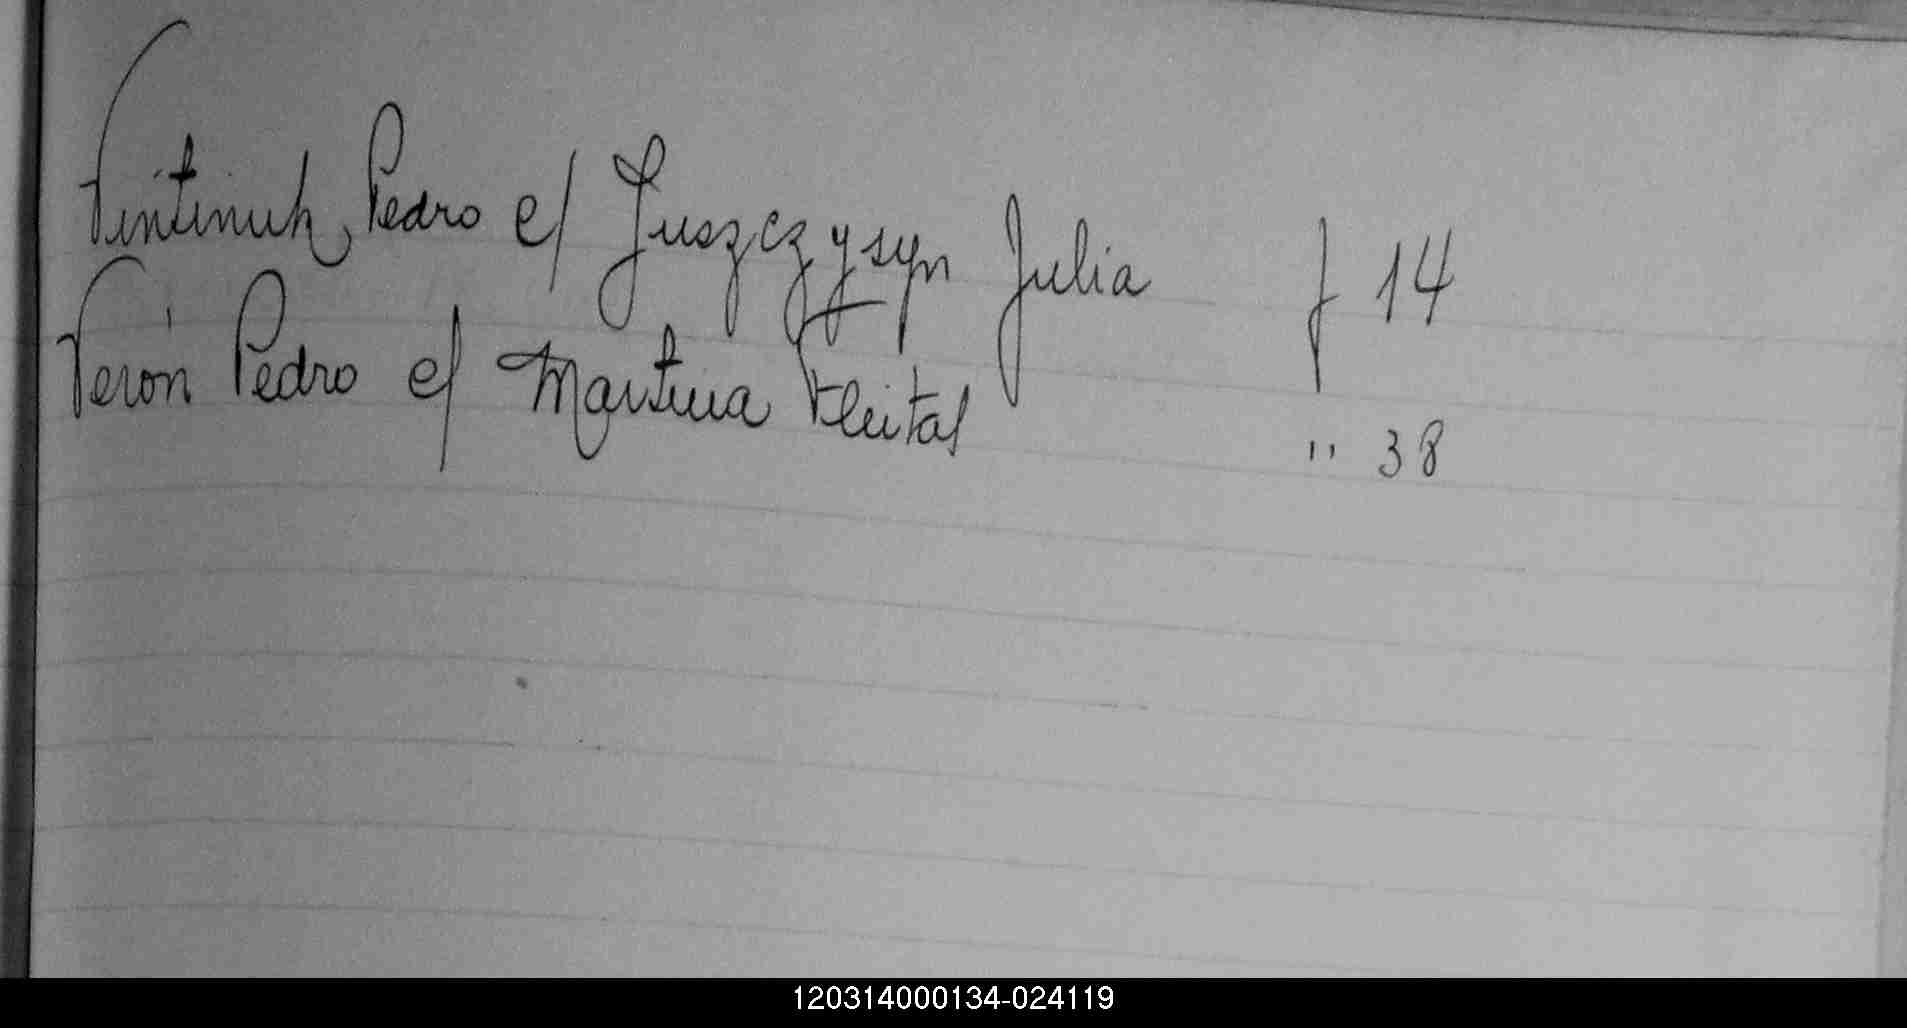 Vintinuk, Pedro c/ Juszczysyn Julia f 14
Verón Pedro c/ Martina Fleitas " 38
120314000134-024119